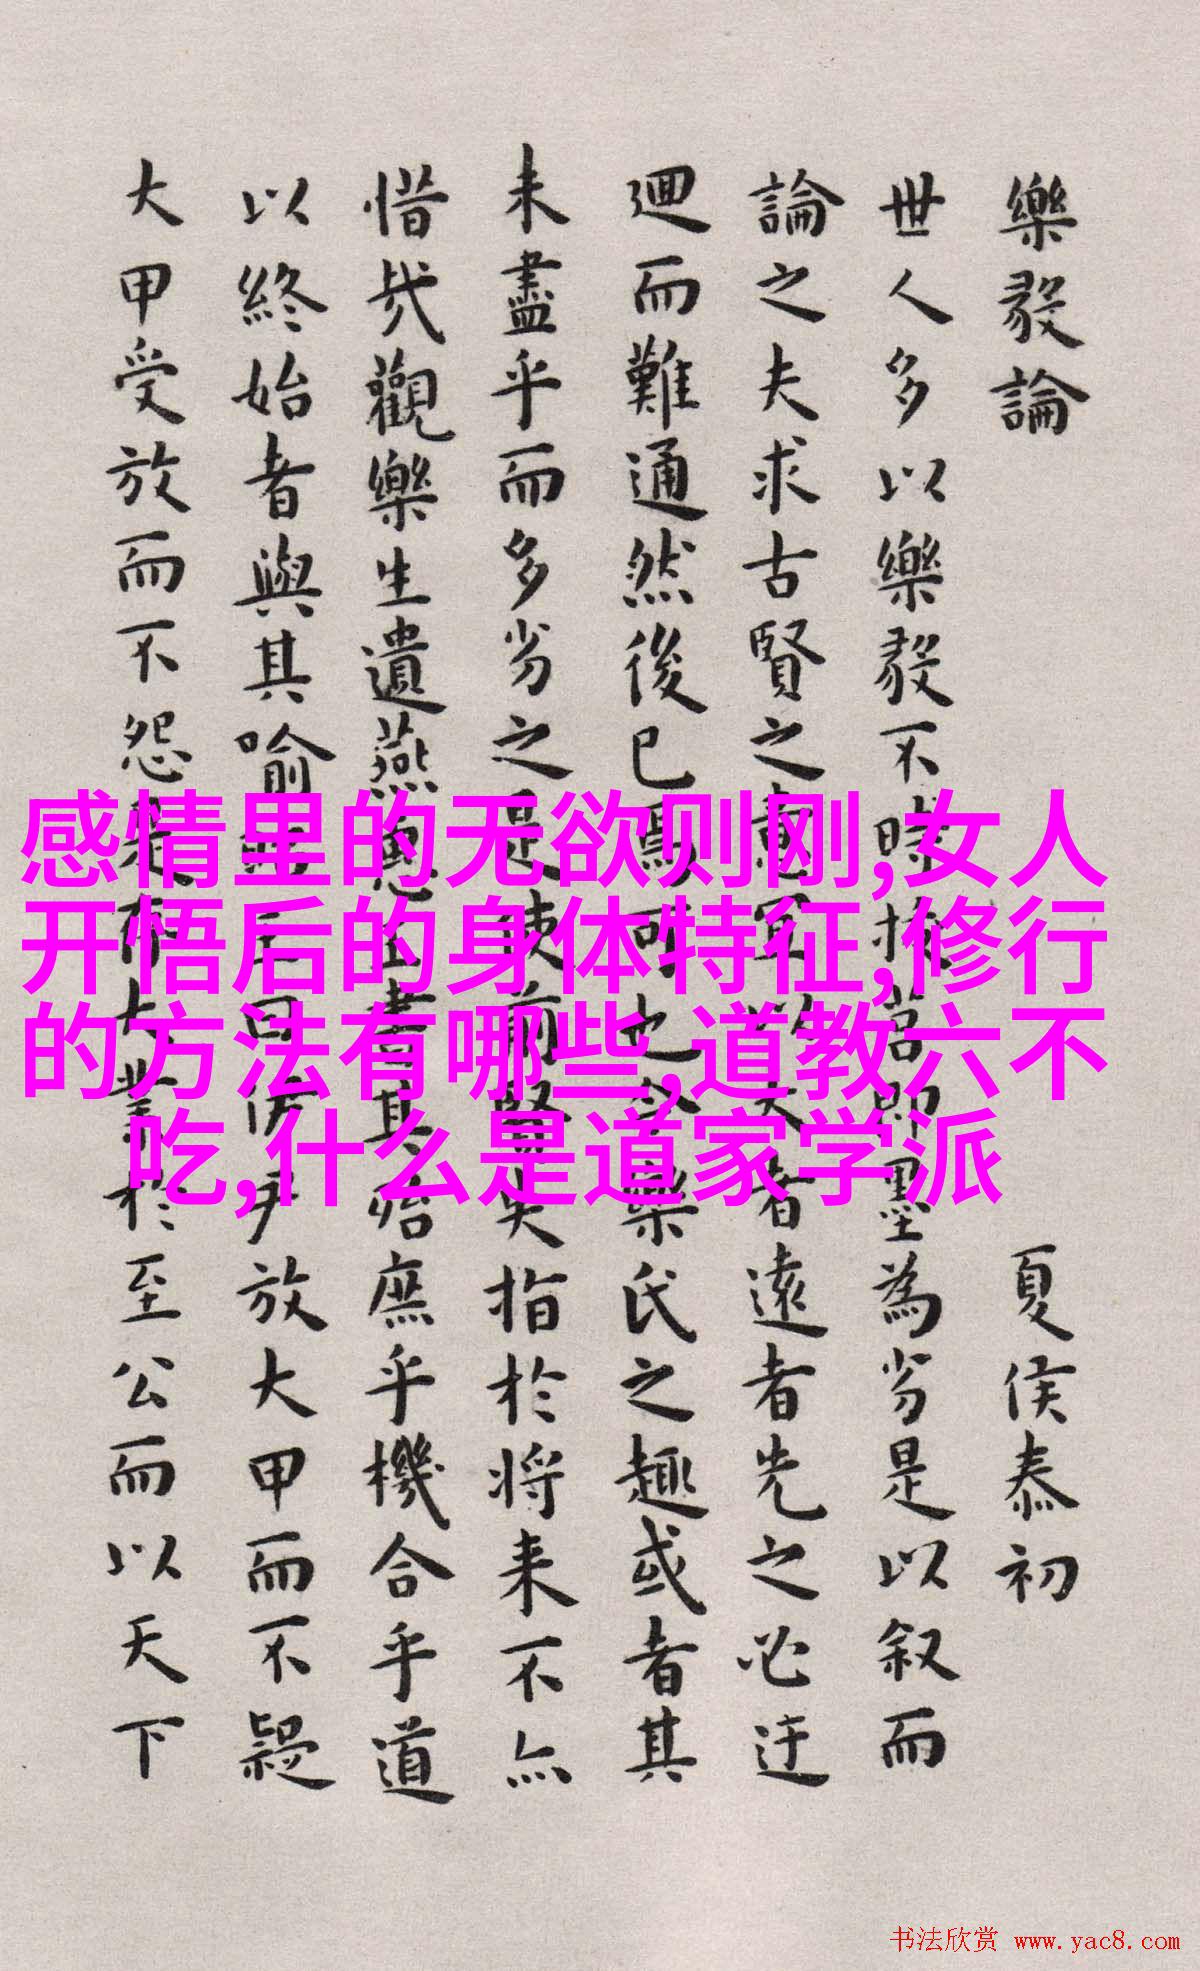 樂毅論 夏侯泰初
世人多以樂毅不時拔莒即墨為劣是以叙而
論之夫求古賢之意宜以大者遠者先之必迂
迴而難通然後已焉可也今樂氏之趣或者其
未盡乎而多劣之是使前賢失指於將来不亦
惜哉觀樂生遺燕惠王書其殆庶乎機合乎道
以終始者與其喻昭王曰伊尹放大甲而不疑
大甲受放而不怨是存大業於至公而以天下
感情里的无欲则刚,女人
开悟后的身体特征,修行
的方法有哪些,道教六不
吃,什么是道家学派
书法欣赏 www.yac8.com